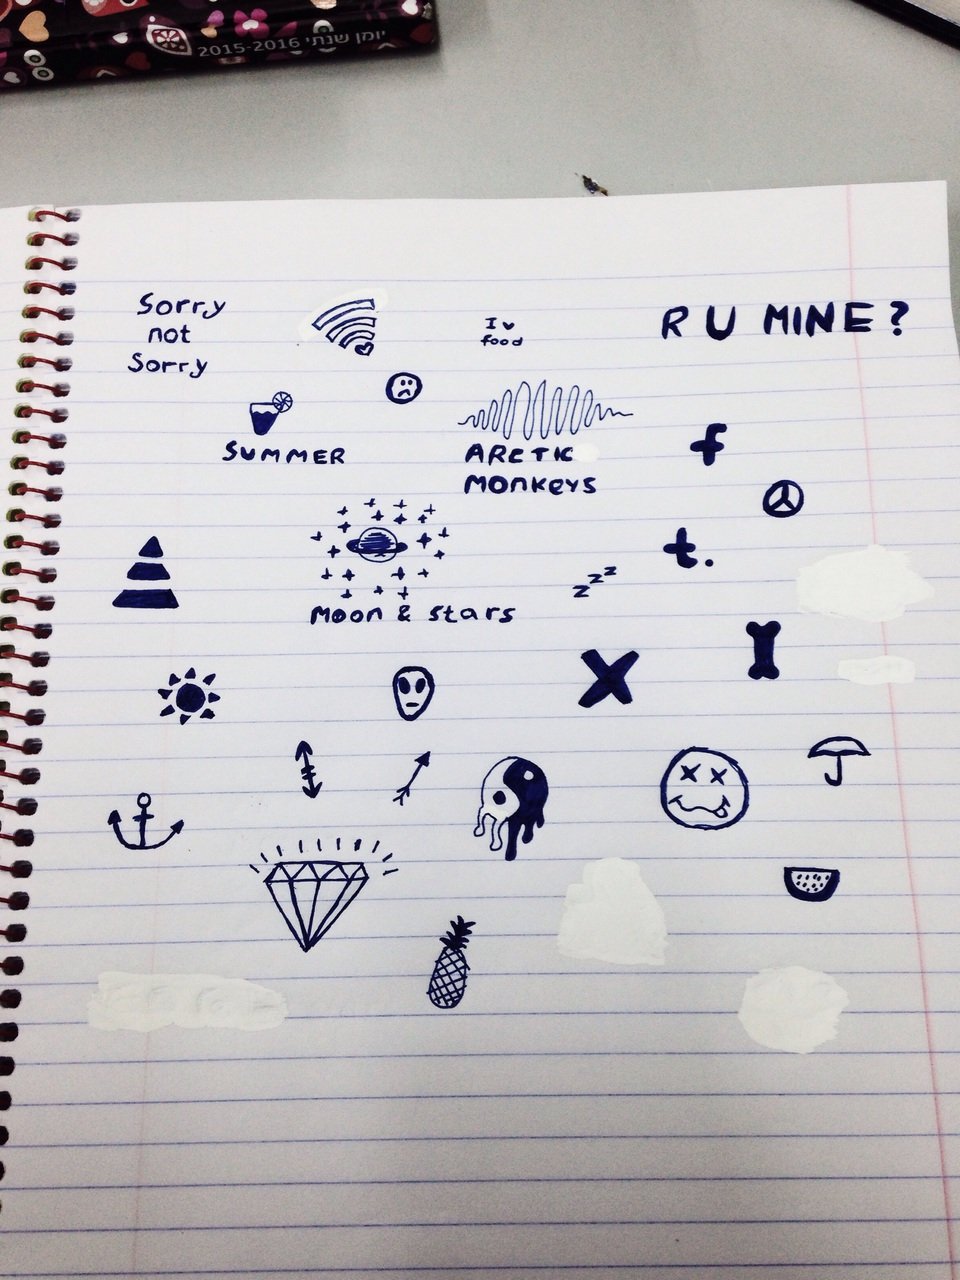 יומן שנתי 2015-2016
Sorry
not
Sorry
I ♥
food
R U MINE?
SUMMER
ARCTIC
MONKEYS
f
t.
zzz
Moon & Stars
X